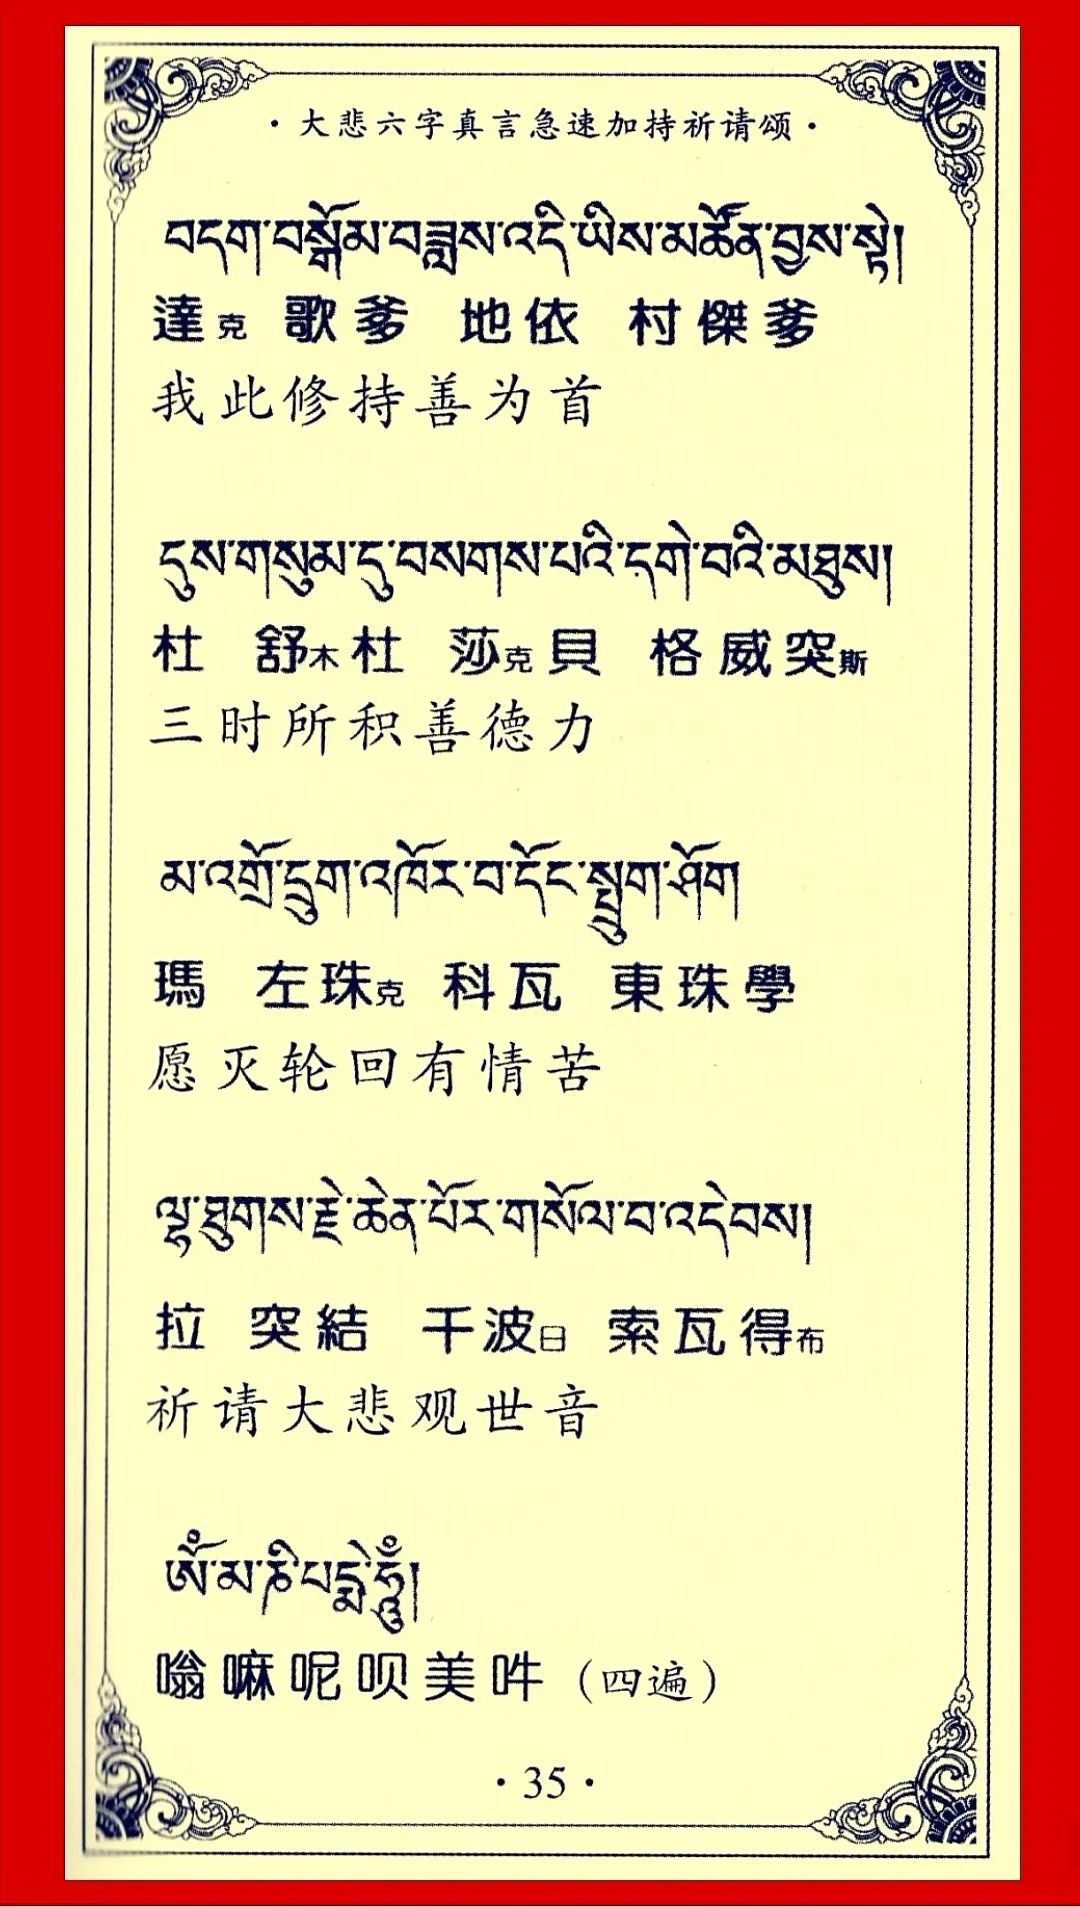 ·大悲六字真言急速加持祈请颂·
བདག་བསྒོམ་བཟླས་འདི་ཡིས་མཚོན་བྱས་སྟེ།
達克 歌爹 地依 村傑爹
我此修持善为首
དུས་གསུམ་དུ་བསགས་པའི་དགེ་བའི་མཐུས།
杜 舒木杜 莎克貝 格威突斯
三时所积善德力
མ་འགྲོ་དྲུག་འཁོར་བ་དོང་སྤྲུག་ཤོག
瑪 左珠克 科瓦 東珠學
愿灭轮回有情苦
ལྷ་ཐུགས་རྗེ་ཆེན་པོར་གསོལ་བ་འདེབས།
拉 突結 千波日 索瓦得布
祈请大悲观世音
ཨོཾ་མ་ཎི་པདྨེ་ཧཱུྃ།
嗡嘛呢呗美吽（四遍）
·35·